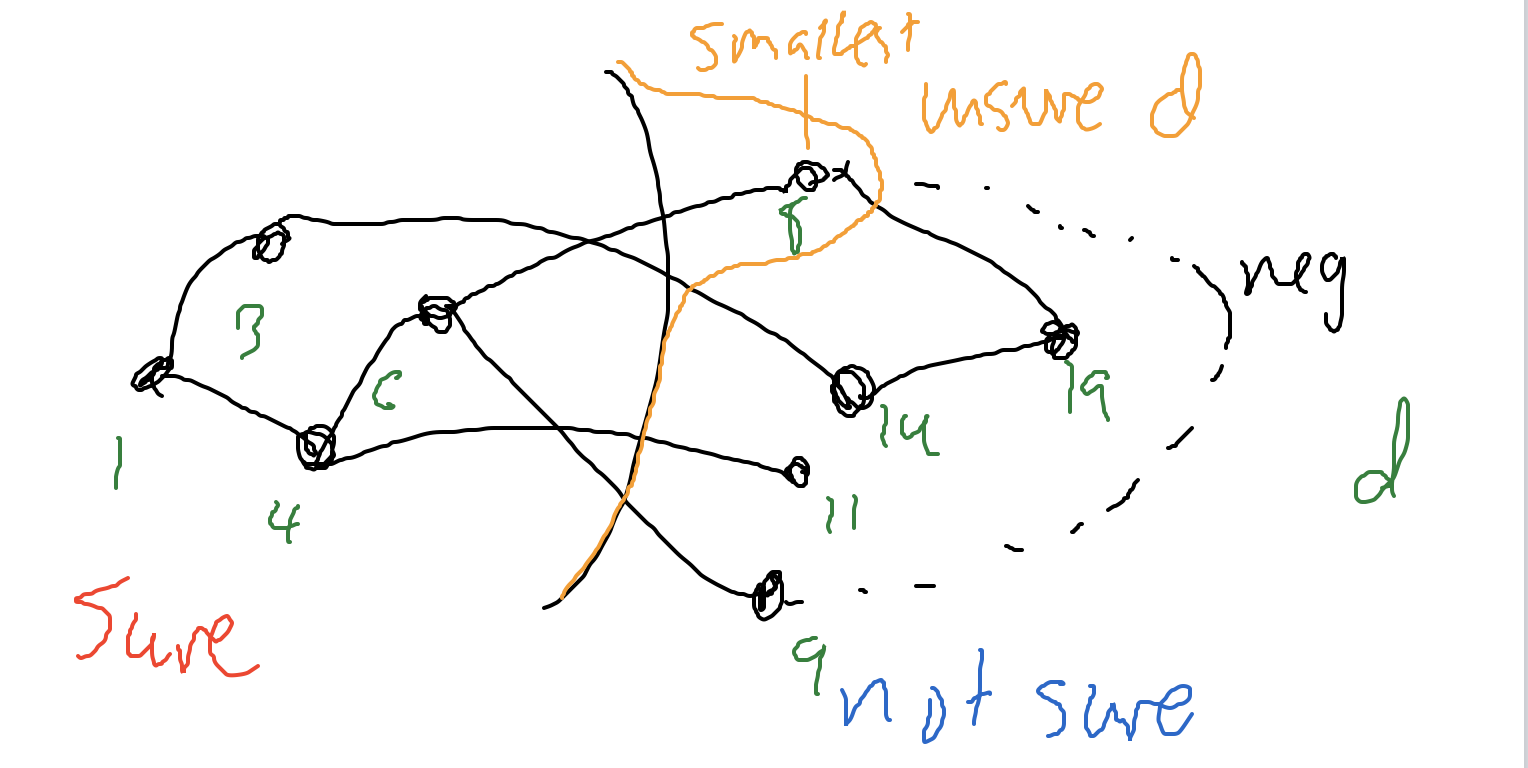 smallest
unsure d
8
neg
3
6
19
14
d
1
4
11
sure
9
not sure